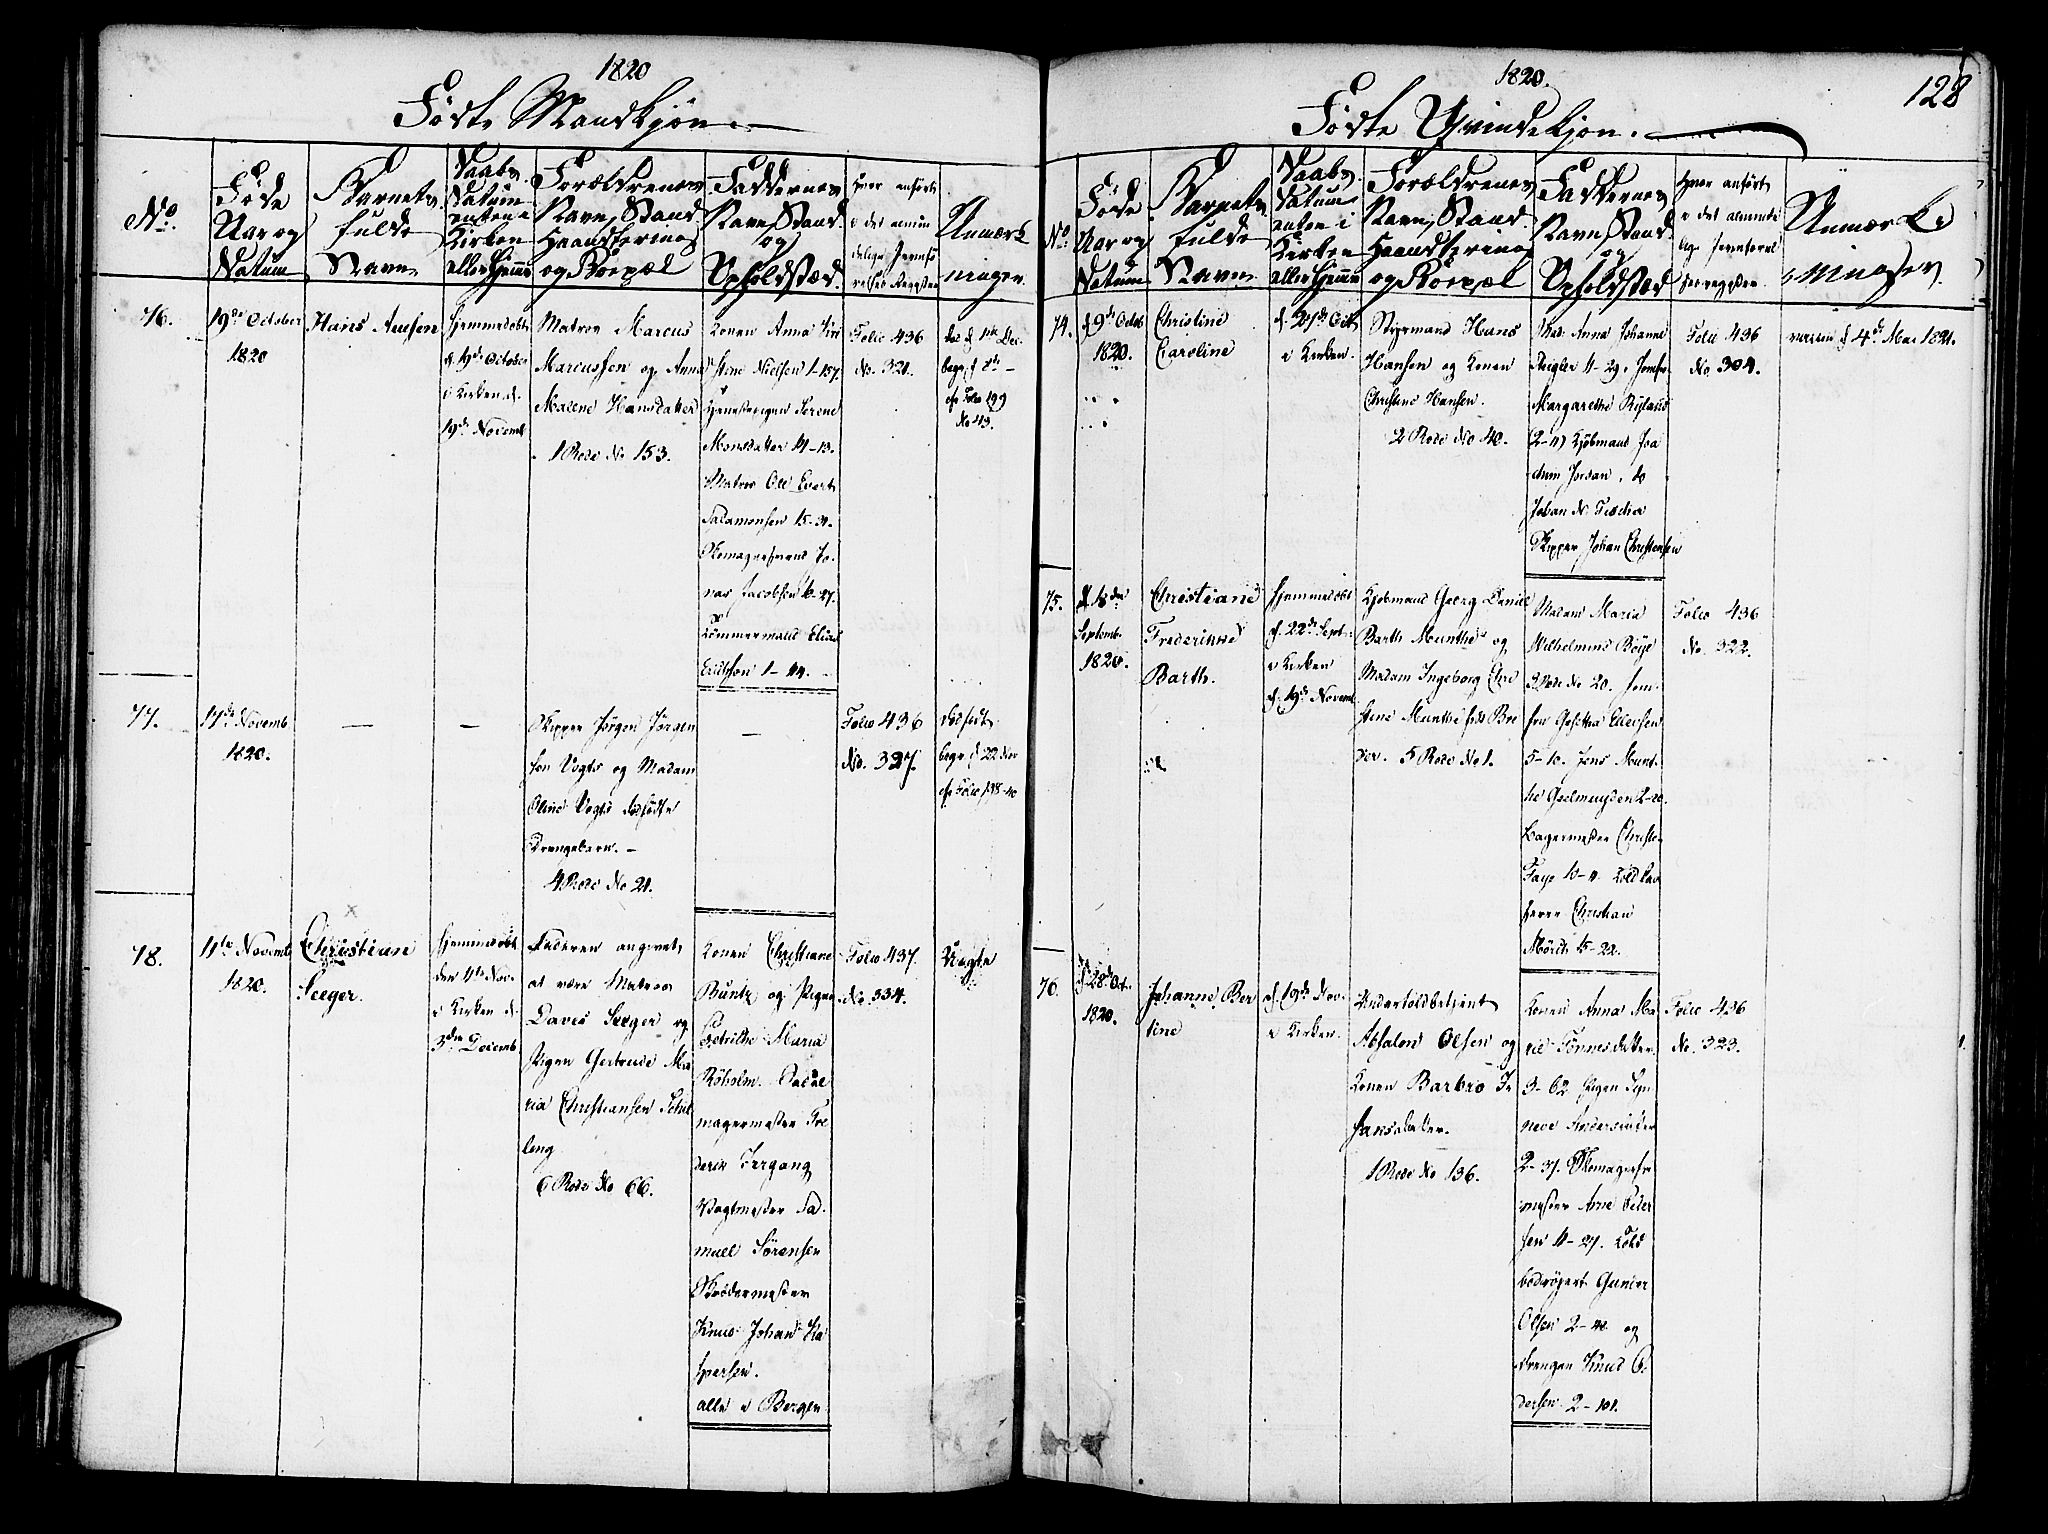 1820
Fødte Mandkjøn.
No.
Føde
Aar og
Datum
Barnets
fulde
Navn
Daabs
Datum
enten i
Kirken
eller hjemme
Forældrenes
Navn, Stand
Haandtering
og Boepæl
Faddernes
Navn, Stand
og
Opholdsstæd.
Hvor anført
i det almin
delige Jevnfø
relses Register
Anmærk
ninger.
76.
19de October
1820
Hans Ansen
Hjemmedøbt
d. 19de October
i Kirken d.
19de Novemb
Matros Marcus
Marcussen og Anna
Malene Hansdatter
1 Rode No 153.
Konen Anna Kir
stine Nielsen 1-157.
Tjenestepigen Serene
Monsdatter 11-13.
Matros Ole Evert
Salamonsen 15-31.
Skomagersvend Jo-
nas Jacobsen 16-27.
og
Tømmermand Elias
Erichsen 1-44.
Folio 436
No. 321.
død d. 1ste Dec.
begr. d. 8de
cfr Folio 199
No 43.
77.
17de Novemb
1820.
—
—
Skipper Jørgen Jørgen
sen Vogts og Madam
Oline Vogts dødfødte
Drengebarn. —
4 Rode No 21.
—
Folio 436
No. 327.
dødfødt
begr. d. 22 Nov
cfr Folio 198-40
78.
11te Novemb
1820.
Christian
Seeger.
hjemmedøbt
den 11te Nov.
i Kirken d.
3die Decemb
Faderen angivet
at være Matros
Daves Seeger og
Pigen Gertrude Ma
ria Christiansen Schil
leng
6 Rode No 66.
Konen Christiane
Buntz og Pigen
Petrikke Maria
Røholm. Sadel
magermester Fre
derik Irrgang
Vagtmester Sa-
muel Sørensen
Skrædermester
Knud Johan Ka
spersen.
alle i Bergen
Folio 437.
No. 334.
Uægte
1820.
128
Fødte Qvindekjøn.
No.
Føde
Aar og
Datum
Barnets
fulde
Navn
Daabs
Datum
enten i
Kirken
eller hjemme
Forældrenes
Navn, Stand
Haandtering
og Boepæl
Faddernes
Navn, Stand
og
Opholdsstæd
Hvor anført
i det alminde
lige Jevnførel
ses register.
Anmærk
ninger.
74.
d. 9de Octob
1820.
Christine
Caroline
d. 27de Octb
i Kirken.
Styrmand Hans
Hansen og Konen
Christine Hansen.
2 Rode No 40.
Mad. Anna Johanne
Zeigler 11-29. Jomfr.
Margarethe Rylands
(2-4) Kjøbmand Joa
chim Jordan, do
Johan N. Fischer
Skipper Johan Christensen
Folio 436
No 304.
vaccin. d. 4de Mai 1821.
75.
d. 18de
Septemb.
1820.
Christiane
Frederikke
Barth.
hjemmedøbt
d. 22de Septr.
i Kirken
d. 19de Novemb
Kjøbmand Georg Daniel
Barth Munthe og
Madam Ingeborg Chri
stene Munthe fød Bre
der. 5 Rode No 1.
Madam Maria
Wilhelmine Böye
3 Rode No 20. Jom-
fru Gesetha Ellertsen
5-10. Jens Munt-
he Geelmuyden 2-20.
Bagermester Christen
Faye 10-4. Toldkas
serer Christian
Mörch 15-22.
Folio 436
No. 322.
76.
d. 28de Oct.
1820.
Johanne Ber
tine
d. 19de Nov.
i Kirken.
Undertoldbetjent
Absalon Olsen og
Konen Barbro Jo
hansdatter.
1 Rode No 136.
Konen Anna Ma
rie Tönnesdatter
3-62. Pigen Syn
neve Andersdatter
2-37. Skomagerfor
mester Arne Peter
sen 11-27. Told
bodrøgert Gunder
Olsen 2-40 og
drengen Knud Pe
dersen 2-101.
Folio 436
No. 323.